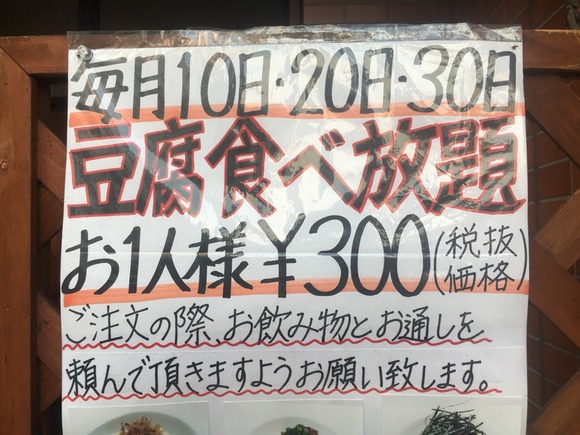 毎月10日・20日・30日
豆腐食べ放題
お1人様¥300(税抜価格)
ご注文の際、お飲み物とお通しを
頼んで頂きますようお願い致します。